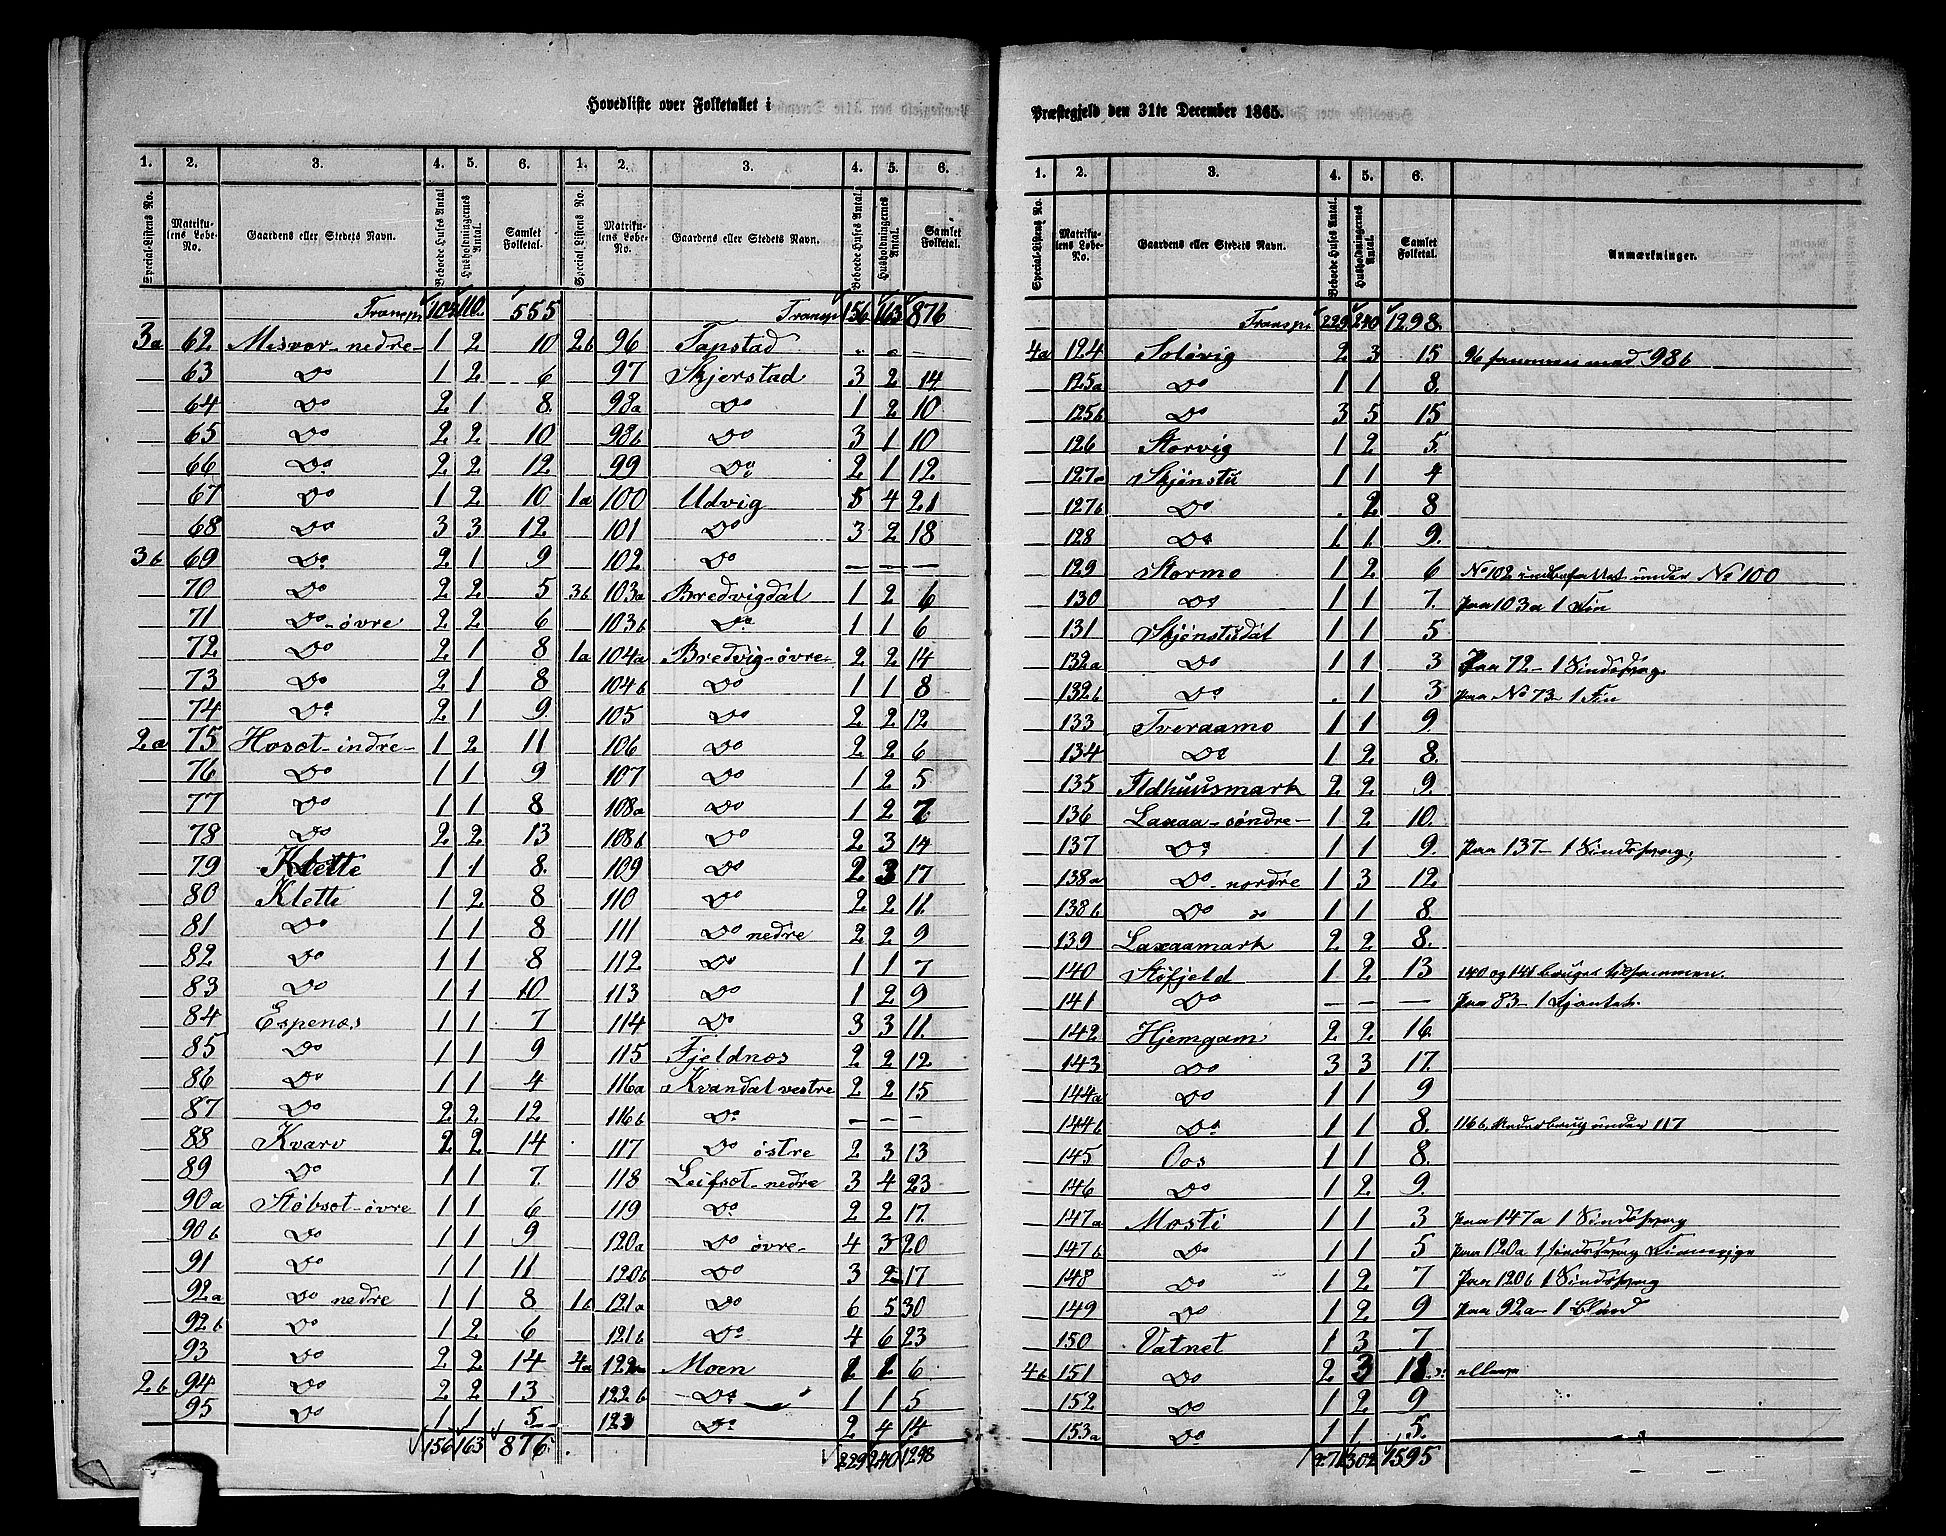 Hovedliste over Folketallet i
1. 2. 3. 4. 5. 6. 1. 2. 3. 4. 5. 6.
Special-Listens No. Matrikulens Løbe-No. Gaardens eller Stedets Navn. Beboede Huses Antal Husholdningernes Antal. Samlet Folketal. Special-Listens No. Matrikulens Løbe-No. Gaardens eller Stedets Navn. Beboede Huses Antal. Husholdningernes Antal. Samlet Folketal.
Transp. 104 110. 555 Transp 156 163 876
3a 62 Misvær-nedre 1 2 10 2b 96 Tapstad . . -
63 Do 1 2 6 97 Skjerstad 3 2 14
64 Do 2 1 8. 98a Do 1 2 10
65 Do 2 2 10 98b Do 3 1 10
66 Do 2 2 12 99 Do 2 1 12
67 Do 1 2 10 1a 100 Udvig 5 4 21
68 Do 3 3 12 101 Do 3 2 18
3b 69 Do 2 1 9 102 Do - - -
70 Do 2 2 5 3b 103a Bredvigdal 1 2 6
71 Do-øvre 2 2 6 103b Do 1 1 6
72 Do 2 1 8 1a 104a Bredvig-øvre 2 2 14
73 Do 2 1 8 104b Do 1 1 8
74 Do 2 1 9. 105 Do 2 2 12
2a 75 Hosæt-indre 1 2 11 106 Do 2 2 6
76 Do 1 1 9 107 Do 1 2 5
77 Do 1 1 8 108a Do 1 2 7
78 Do 2 2 13 108b Do 2 3 14
79 Klette 1 1 8. 109 Do 2 3 17
80 Klette 1 2 8 110 Do 2 2 11.
81 Do 1 1 8 111 Do nedre 2 2 9
82 Do 1 1 8 112 Do 1 1 7
83 Do 1 1 10 113 Do 1 2 9
84 Espenæs 1 1 7 114 Do 3 3 11.
85 Do 1 1 9 115 Fjeldnæs 2 2 12
86 Do 1 1 4 116a Kvandal vestre 2 2 15
87 Do 2 2 12 116b Do - -
88 Kvarv 2 2 14 117 Do østre 2 3 13
89 Do 1 1 7. 118 Leifsæt-nedre 3 4 23
90a Støbsæt-øvre 1 1 6 119 Do 2 2 17.
90b Do 1 1 9 120a Do øvre 4 3 20
91 Do 1 1 11 120b Do 3 2 17
92a Do nedre 1 1 8 1b 121a Do 6 5 30
92b Do 1 2 6 121b Do 4 6 23
93 Do 2 2 14 4a 122a Moen 6
2b 94 Do 2 2 13 122b Do 1 1 5
95 Do 1 1 5 123 Do 2 4 14
156 163 876. 229 240 1298
Præstegjeld den 31te December 1865.
1. 2. 3. 4. 5. 6.
Special-Listens No. Matrikulens Løbe-No. Gaardens eller Stedets Navn. Beboede Huses Antal. Husholdningernes Antal. Samlet Folketal. Anmærkninger.
Transp. 229 240 1298.
4a 124 Soløvig 2 3 15 96 sammen med 98b
125a Do 1 1 8.
125b Do 3 5 15
126 Storvig 1 2 5.
127a Skjønstu 1 1 4
127b Do . 2 8
128 Do 1 1 9.
129 Stormo 1 2 6 No 102 indbefattet under No 100
130 Do 1 1 7. Paa 103a 1 Fin
131 Skjønstudal 1 1 5
132a Do 1 1 3 Paa 72- 1 Sindssvag.
132b Do . 1 3 Paa No 73- 1 Fin
133 Tveraamo 1 1 9.
134 Do 1 2 8.
135 Ildhuusmark 2 2 9.
136 Laxaa-søndre 1 2 10.
137 Do 1 1 9. Paa 137- 1 Sindssvag.
138a Do-nordre 1 3 12
138b Do " 1 1 8.
139 Laxaamark 2 2 8.
140 Støfjeld 1 2 13 140 og 141 bruges tilsammen.
141 Do - - - Paa 83- 1
142 Hjemgam 2 2 16.
143 Do 3 3 17.
144a Do 1 1 9
144b Do 1 1 8. 116b. Underbrug under 117
145 Oos 1 1 8.
146 Do 1 2 9.
147a Mosti 1 1 3 Paa 147a 1 Sindssvag
147b Do 1 1 5 Paa 120a 1 Sindssvag
148 Do 1 2 7 Paa 120b 1 Sindssvag
149 Do 1 2 9 Paa 92a- 1 Blind
150 Vatnet 1 3 7
4b 151 Do 2 3
152 Do 1 2 9
153a Do 1 1 5.
271 302 1595